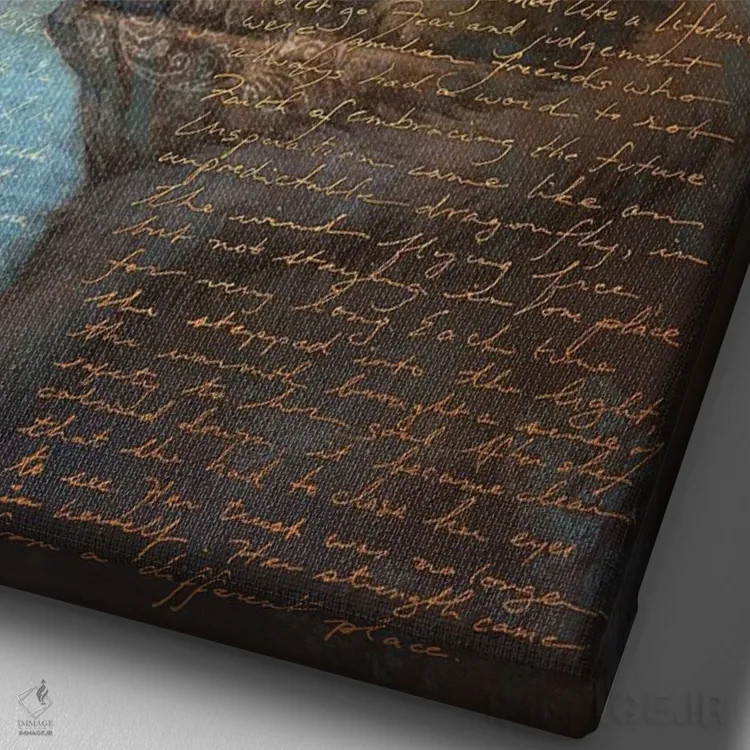 like a lifetime
let go. Fear and judgement
were familiar friends who
always had a word to rob
Faith of embracing the future.
Inspiration came like an
unpredictable dragonfly, in
the wind flying free,
but not staying in one place
for very long. Each time
she stepped into the light,
the warmth brought a sense of
to her soul. She
down, it became clear
that she had to close her eyes
to see. Her trust was no longer
in herself. Her strength came
from a different place.
IMMAGE
IMMAGE.IR
IMMAGE.IR